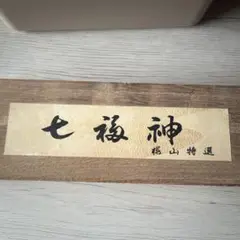 七福神
桃山特選